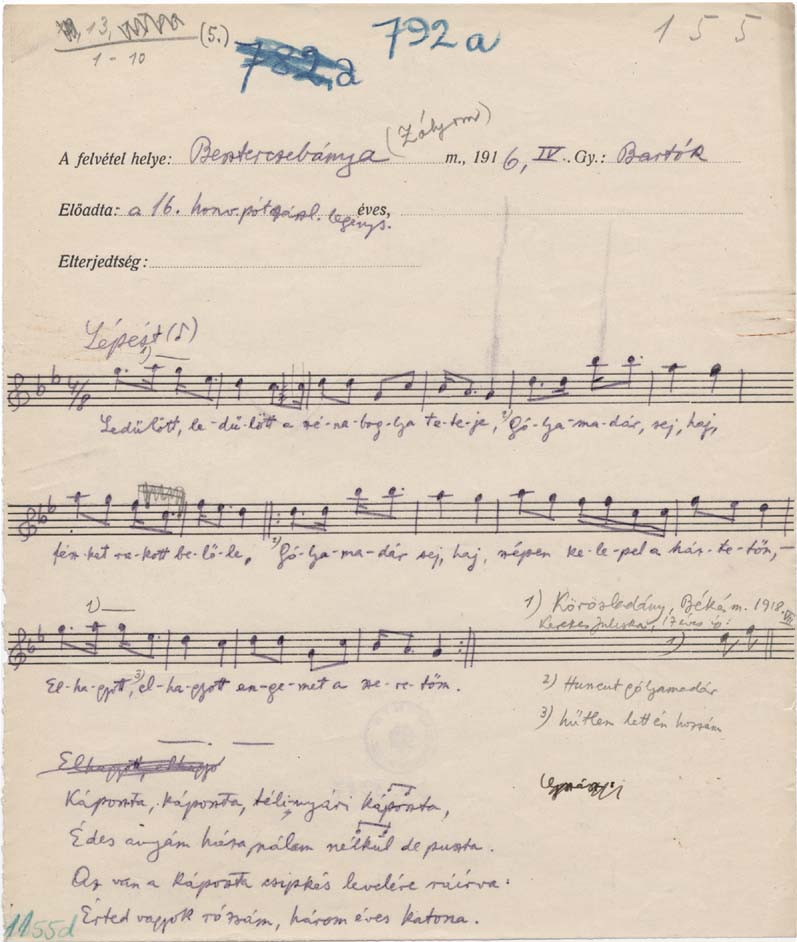 13,
1 - 10
(5.)
782a
792 a
155
A felvétel helye: Besztercsebánya (Zólyom) m., 1916, IV. Gy.: Bartók
Előadta: a 16. honv. pótzászl. legénys. éves,
Elterjedtség:
Lépést (♪)
1)
4/8
Ledűlött, le-dű-lött a szé-na-bog-lya te-te-je, 2) Gó-lya-ma-dár, sej, haj,
fész-ket ra-kott be-lő-le, 2) Gó-lya-ma-dár sej, haj, szépen ke-le-pel a ház-te-tőn, -
1)
El-ha-gyott, 3) el-ha-gyott en-ge-met a sze-re-tőm.
1) Körösladány, Békés m. 1918. VII
Kerekes Juliska, 17 éves
1)
2) Huncut gólyamadár
3) hűtlen lett én hozzám
Elhagyott, elhagyo
Káposzta, káposzta, téli-nyári káposzta,
Édes anyám háza nálam nélkül de puszta.
Az van a káposzta csipkés levelére ráírva:
Érted vagyok rózsám, három éves katona.
1155d